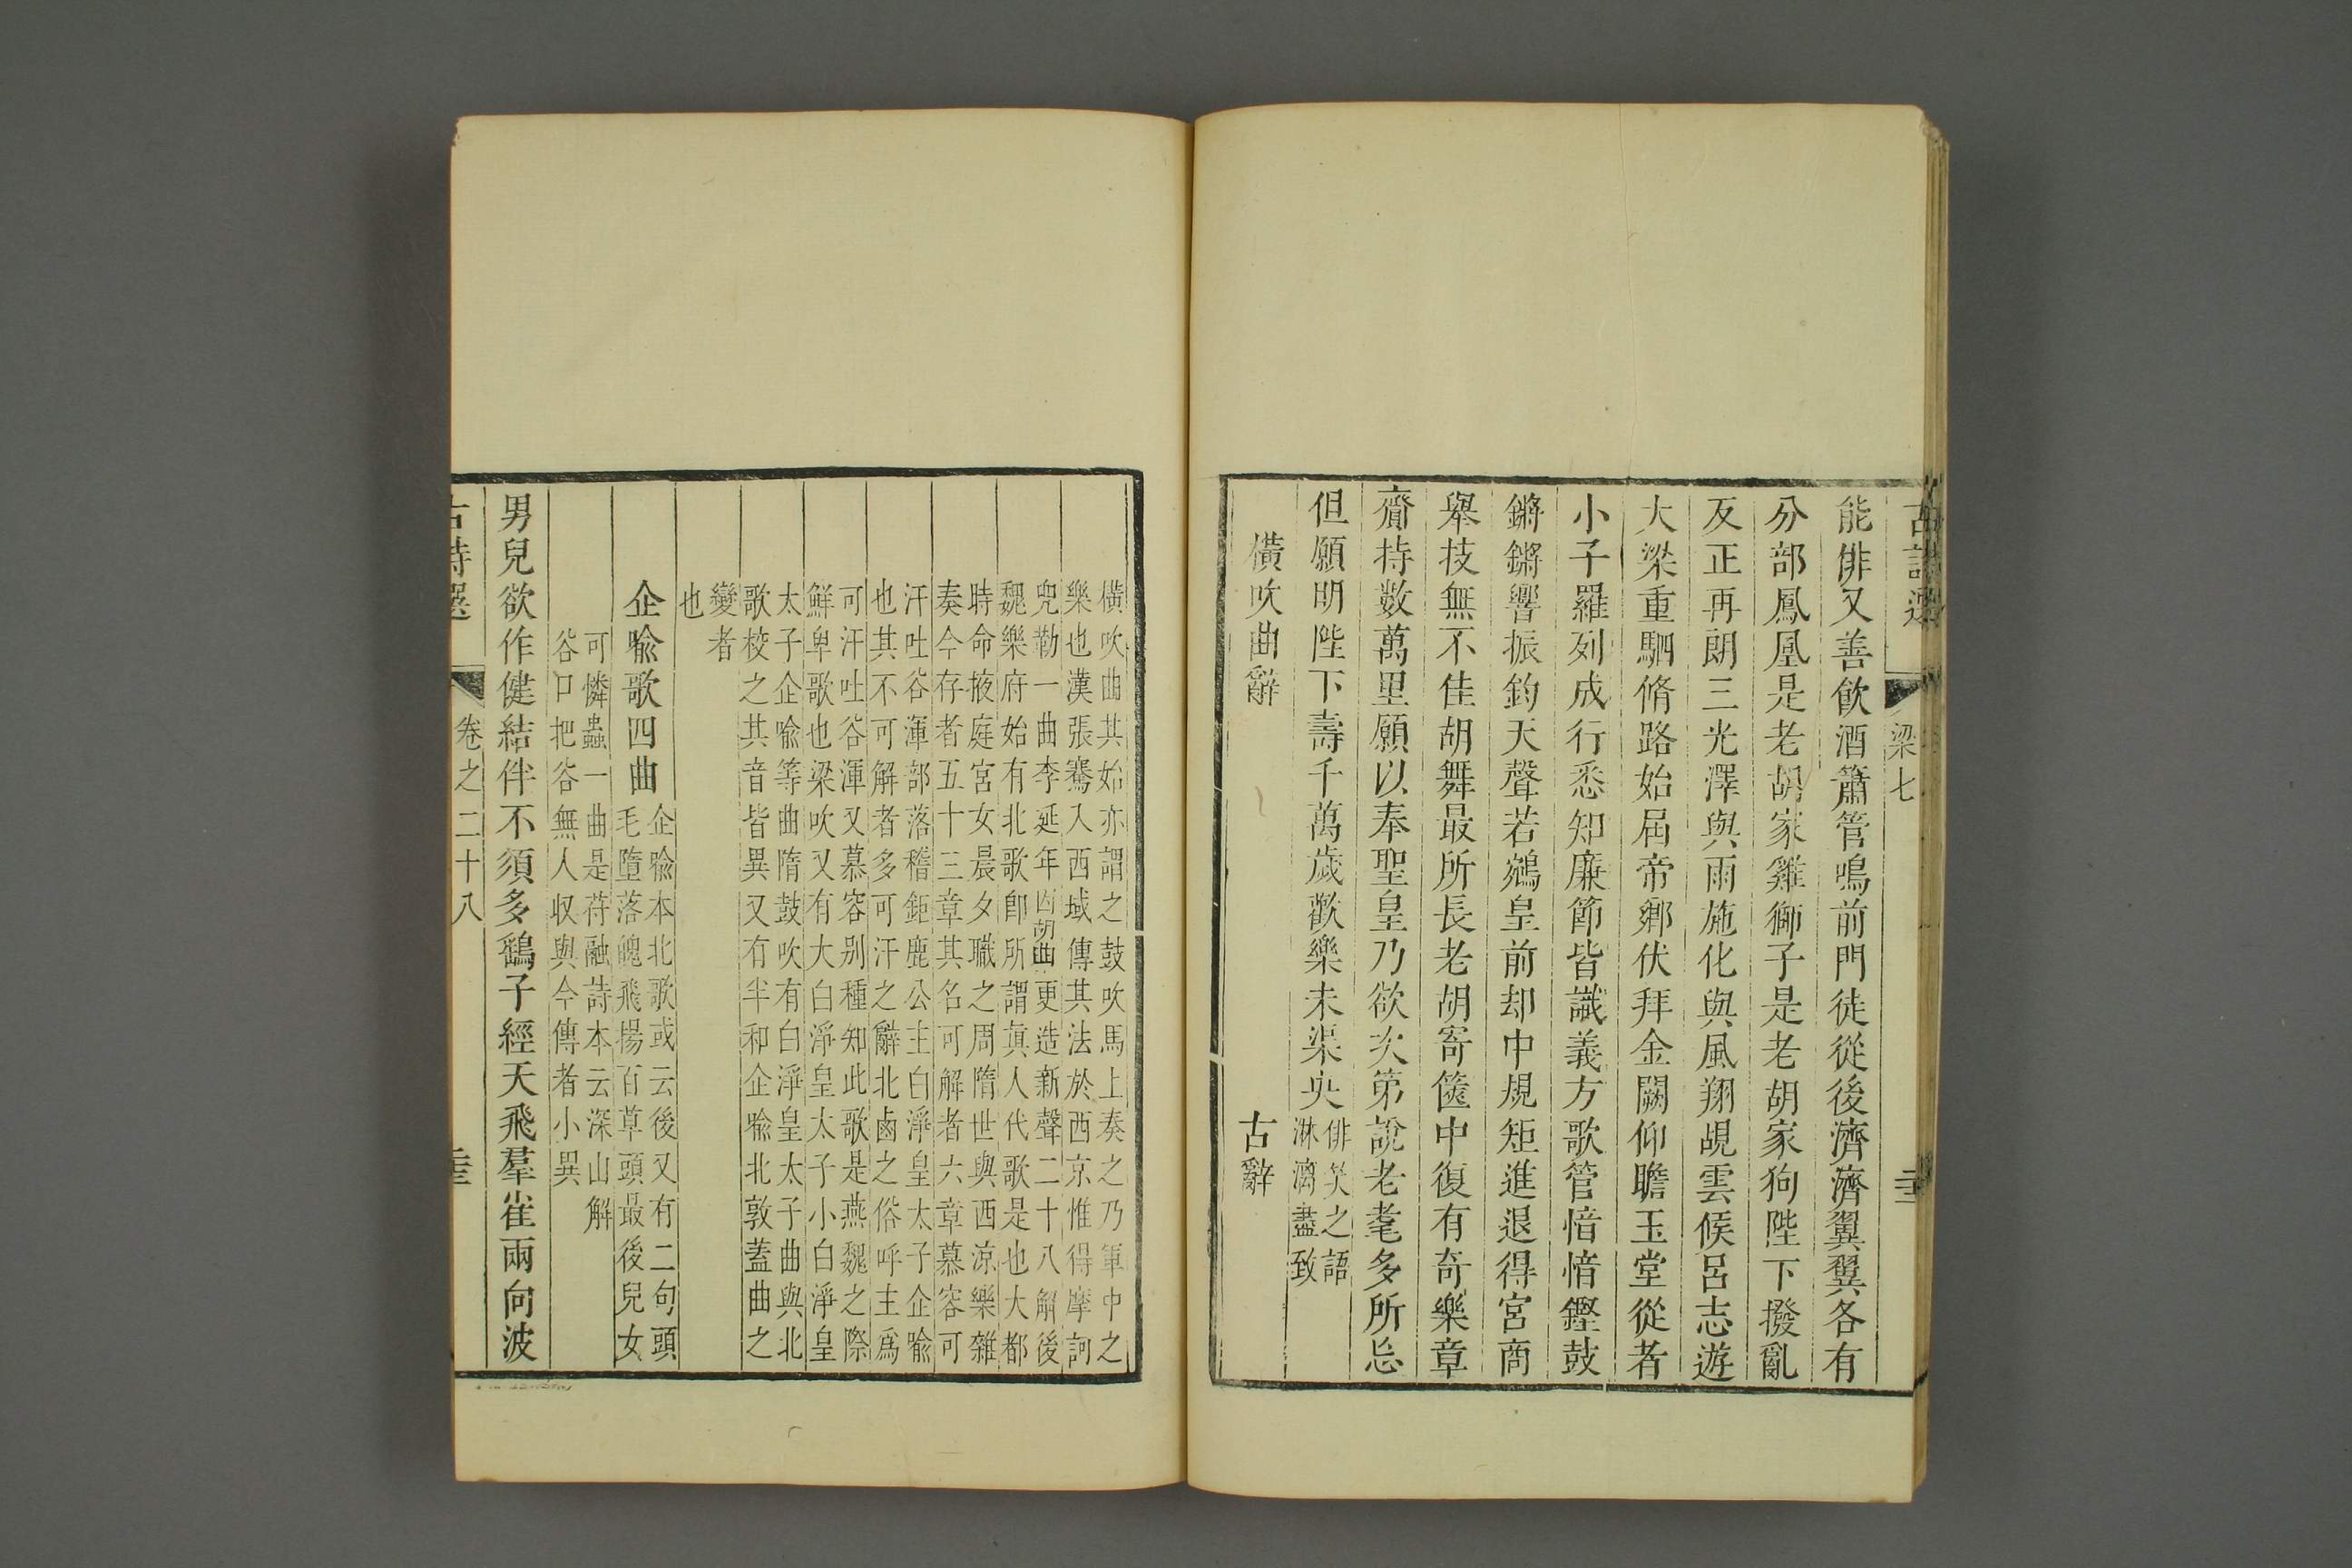 梁七
能俳又善飲酒簫管鳴前門徒從後濟濟翼翼各有
分部鳳凰是老胡家雞獅子是老胡家狗陛下撥亂
反正再朗三光澤與雨施化與風翔覘雲候呂志遊
大梁重駟脩路始屆帝鄉伏拜金闕仰瞻玉堂從者
小子羅列成行悉知廉節皆識義方歌管愔愔鏗鼓
鏘鏘響振鈞天聲若鵷皇前却中規矩進退得宮商
舉技無不佳胡舞最所長老胡寄篋中復有奇樂章
齎持數萬里願以奉聖皇乃欲次第說老耄多所忘
但願明陛下壽千萬歲歡樂未渠央
俳笑之語
淋漓盡致
橫吹曲辭 古辭
橫吹曲其始亦謂之鼓吹馬上奏之乃軍中之
樂也漢張騫入西域傳其法於西京惟得摩訶
兜勒一曲李延年因胡曲更造新聲二十八解後
魏樂府始有北歌即所謂真人代歌是也大都
時命掖庭宮女晨夕職之周隋世與西涼樂雜
奏今存者五十三章其名可解者六章慕容可
汗吐谷渾部落稽鉅鹿公主白淨皇太子企喻
也其不可解者多可汗之辭北鹵之俗呼主爲
可汗吐谷渾又慕容別種知此歌是燕魏之際
鮮卑歌也梁吹又有大白淨皇太子小白淨皇
太子企喻等曲隋鼓吹有白淨皇太子曲與北
歌校之其音皆異又有半和企喻北敦蓋曲之
變者
也
企喻歌四曲
企喻本北歌或云後又有二句頭
毛墮落魄飛揚百草頭最後兒女
可憐蟲一曲是苻融詩本云深山解
谷口把谷無人収與今傳者小異
男兒欲作健結伴不須多鷂子經天飛羣雀兩向波
卷之二十八